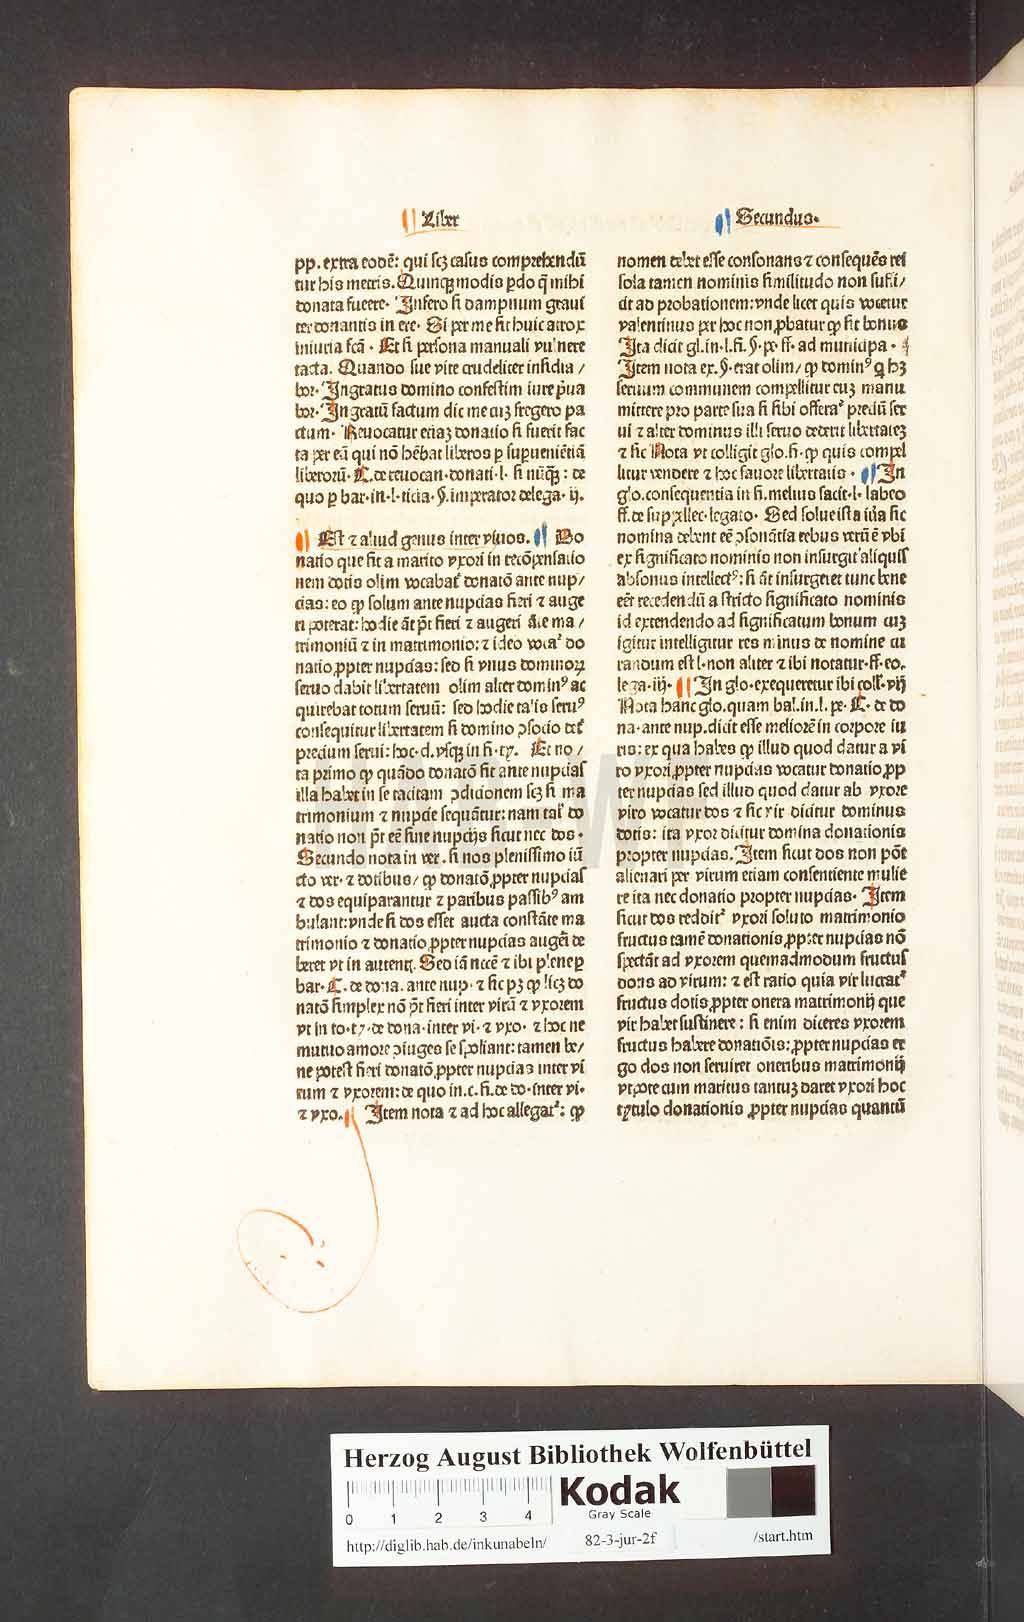 Liber
Secundus.
pp. extra eodē: qui scꝫ casus comprehendū
tur his metris. Quinqꝫ modis ꝑdo ꝙ mihi
donata fuere. Infero si dampnum graui
ter donantis in ere. Si per me sit huic atrox
iniuria fcā. Et si persona manuali vulnere
tacta. Quando sue vite crudeliter insidia/
bor. Ingratus domino confestim iure pͥua
bor. Ingratū factum dic me cuꝫ fregero pa
ctum. Reuocatur etiaꝫ donatio si fuerit fac
ta per eā qui nō hēbat liberos ꝑ superueniētiā
liberorū. C. de reuocan. donati. l. si nūqꝫ: de
quo ꝑ bar. in. l. ticia. §. imperator de lega. ij.
Est ⁊ aliud genus inter viuos. Do
natio que fit a marito vxori in recōpensatio
nem dotis olim vocabat᷑ donatō ante nup/
cias: eo ꝙ solum ante nupcias fieri ⁊ auge
ri poterat: hodie āt pōt fieri ⁊ augeri āte ma/
trimoniū ⁊ in matrimonio: ⁊ ideo vocat᷑ do
natio ꝓpter nupcias: sed si vnus dominoꝝ
seruo dabit libertatem olim alter dominꝰ ac
quirebat totum seruū: sed hodie talis seruꝰ
consequitur libertatem si domino ꝯsocio det᷑
precium serui: hoc. d. vsqꝫ in fi. tꝫ. Et no/
ta primo ꝙ quādo donatō fit ante nupcias
illa habet in se tacitam ꝯdicionem scꝫ si ma
trimonium ⁊ nupcie sequāntur: nam tal᷑ do
natio non pōt eē sine nupcijs sicut nec dos.
Secundo nota in ver. si nos plenissimo iū
cto ver. ⁊ dotibus/ ꝙ donatō ꝓpter nupcias
⁊ dos equiparantur ⁊ paribus passibꝰ am
bulant: vnde si dos esset aucta constāte ma
trimonio ⁊ donatio ꝓpter nupcias augeri de
beret vt in autent. Sed iā necē ⁊ ibi plene ꝑ
bar. C. de dona. ante nup. ⁊ sic pꝫ ꝙ licꝫ do
natō simplex nō pōt fieri inter virū ⁊ vxorem
vt in to. tꝫ. de dona. inter vi. ⁊ vxo. ⁊ hoc ne
mutuo amore ꝯiuges se spoliant: tamen be/
ne potest fieri donatō ꝓpter nupcias inter vi
rum ⁊ vxorem: de quo in. c. fi. de do. inter vi.
⁊ vxo. Item nota ⁊ ad hoc allegat᷑: ꝙ
nomen debet esse consonans ⁊ consequēs rei
sola tamen nominis similitudo non suffi/
cit ad probationem: vnde licet quis vocetur
valentinus per hoc non ꝓbatur ꝙ sit bonus
Ita dicit gl. in. l. fi. §. pe. ff. ad municipa.
Item nota ex. §. erat olim/ ꝙ dominꝰ ꝗ hꝫ
seruum communem compellitur cuꝫ manu
mittere pro parte sua si sibi offerat᷑ preciū ser
ui ⁊ alter dominus illi seruo dederit libertateꝫ
⁊ sic Nota vt colligit glo. fi. ꝙ quis compel
litur vendere ⁊ hoc fauore libertatis. In
glo. consequentia in fi. melius facit. l. labeo
ff. de suppellec. legato. Sed solue ista iura sic
nomina debent eē ꝯsonātia rebus verū ē vbi
ex significato nominis non insurgit aliquis
absonus intellectꝰ: si āt insurgeret tunc bene
eēt recedendū a stricto significato nominis
id extendendo ad significatum bonum cuꝫ
igitur intelligitur res minus de nomine cu
randum est l. non aliter ⁊ ibi notatur. ff. eo.
lega. iij. In glo. exequeretur ibi coll. vij
Nota hanc glo. quam bal. in. l. pe. C. de do
na. ante nup. dicit esse meliorē in corpore iu
ris: ex qua habes ꝙ illud quod datur a vi
ro vxori ꝓpter nupcias vocatur donatio ꝓp
ter nupcias sed illud quod datur ab vxore
viro vocatur dos ⁊ sic vir dicitur dominus
dotis: ita vxor dicitur domina donationis
propter nupcias. Item sicut dos non pōt
alienari per virum etiam consentiente mulie
re ita nec donatio propter nupcias. Item
sicut dos reddit᷑ vxori soluto matrimonio
fructus tamē donationis ꝓpter nupcias nō
spectāt ad vxorem quemadmodum fructus
dotis ad virum: ⁊ est ratio quia vir lucrat᷑
fructus dotis ꝓpter onera matrimonij que
vir habet sustinere: si enim diceres vxorem
fructus habere donatiōis ꝓpter nupcias er
go dos non seruiret oneribus matrimonij
vtpote cum maritus tantuꝫ daret vxori hoc
tytulo donationis ꝓpter nupcias quantū
HAB-WF
Herzog August Bibliothek Wolfenbüttel
0 1 2 3 4
Kodak
Gray Scale
http://diglib.hab.de/inkunabeln/ 82-3-jur-2f /start.htm